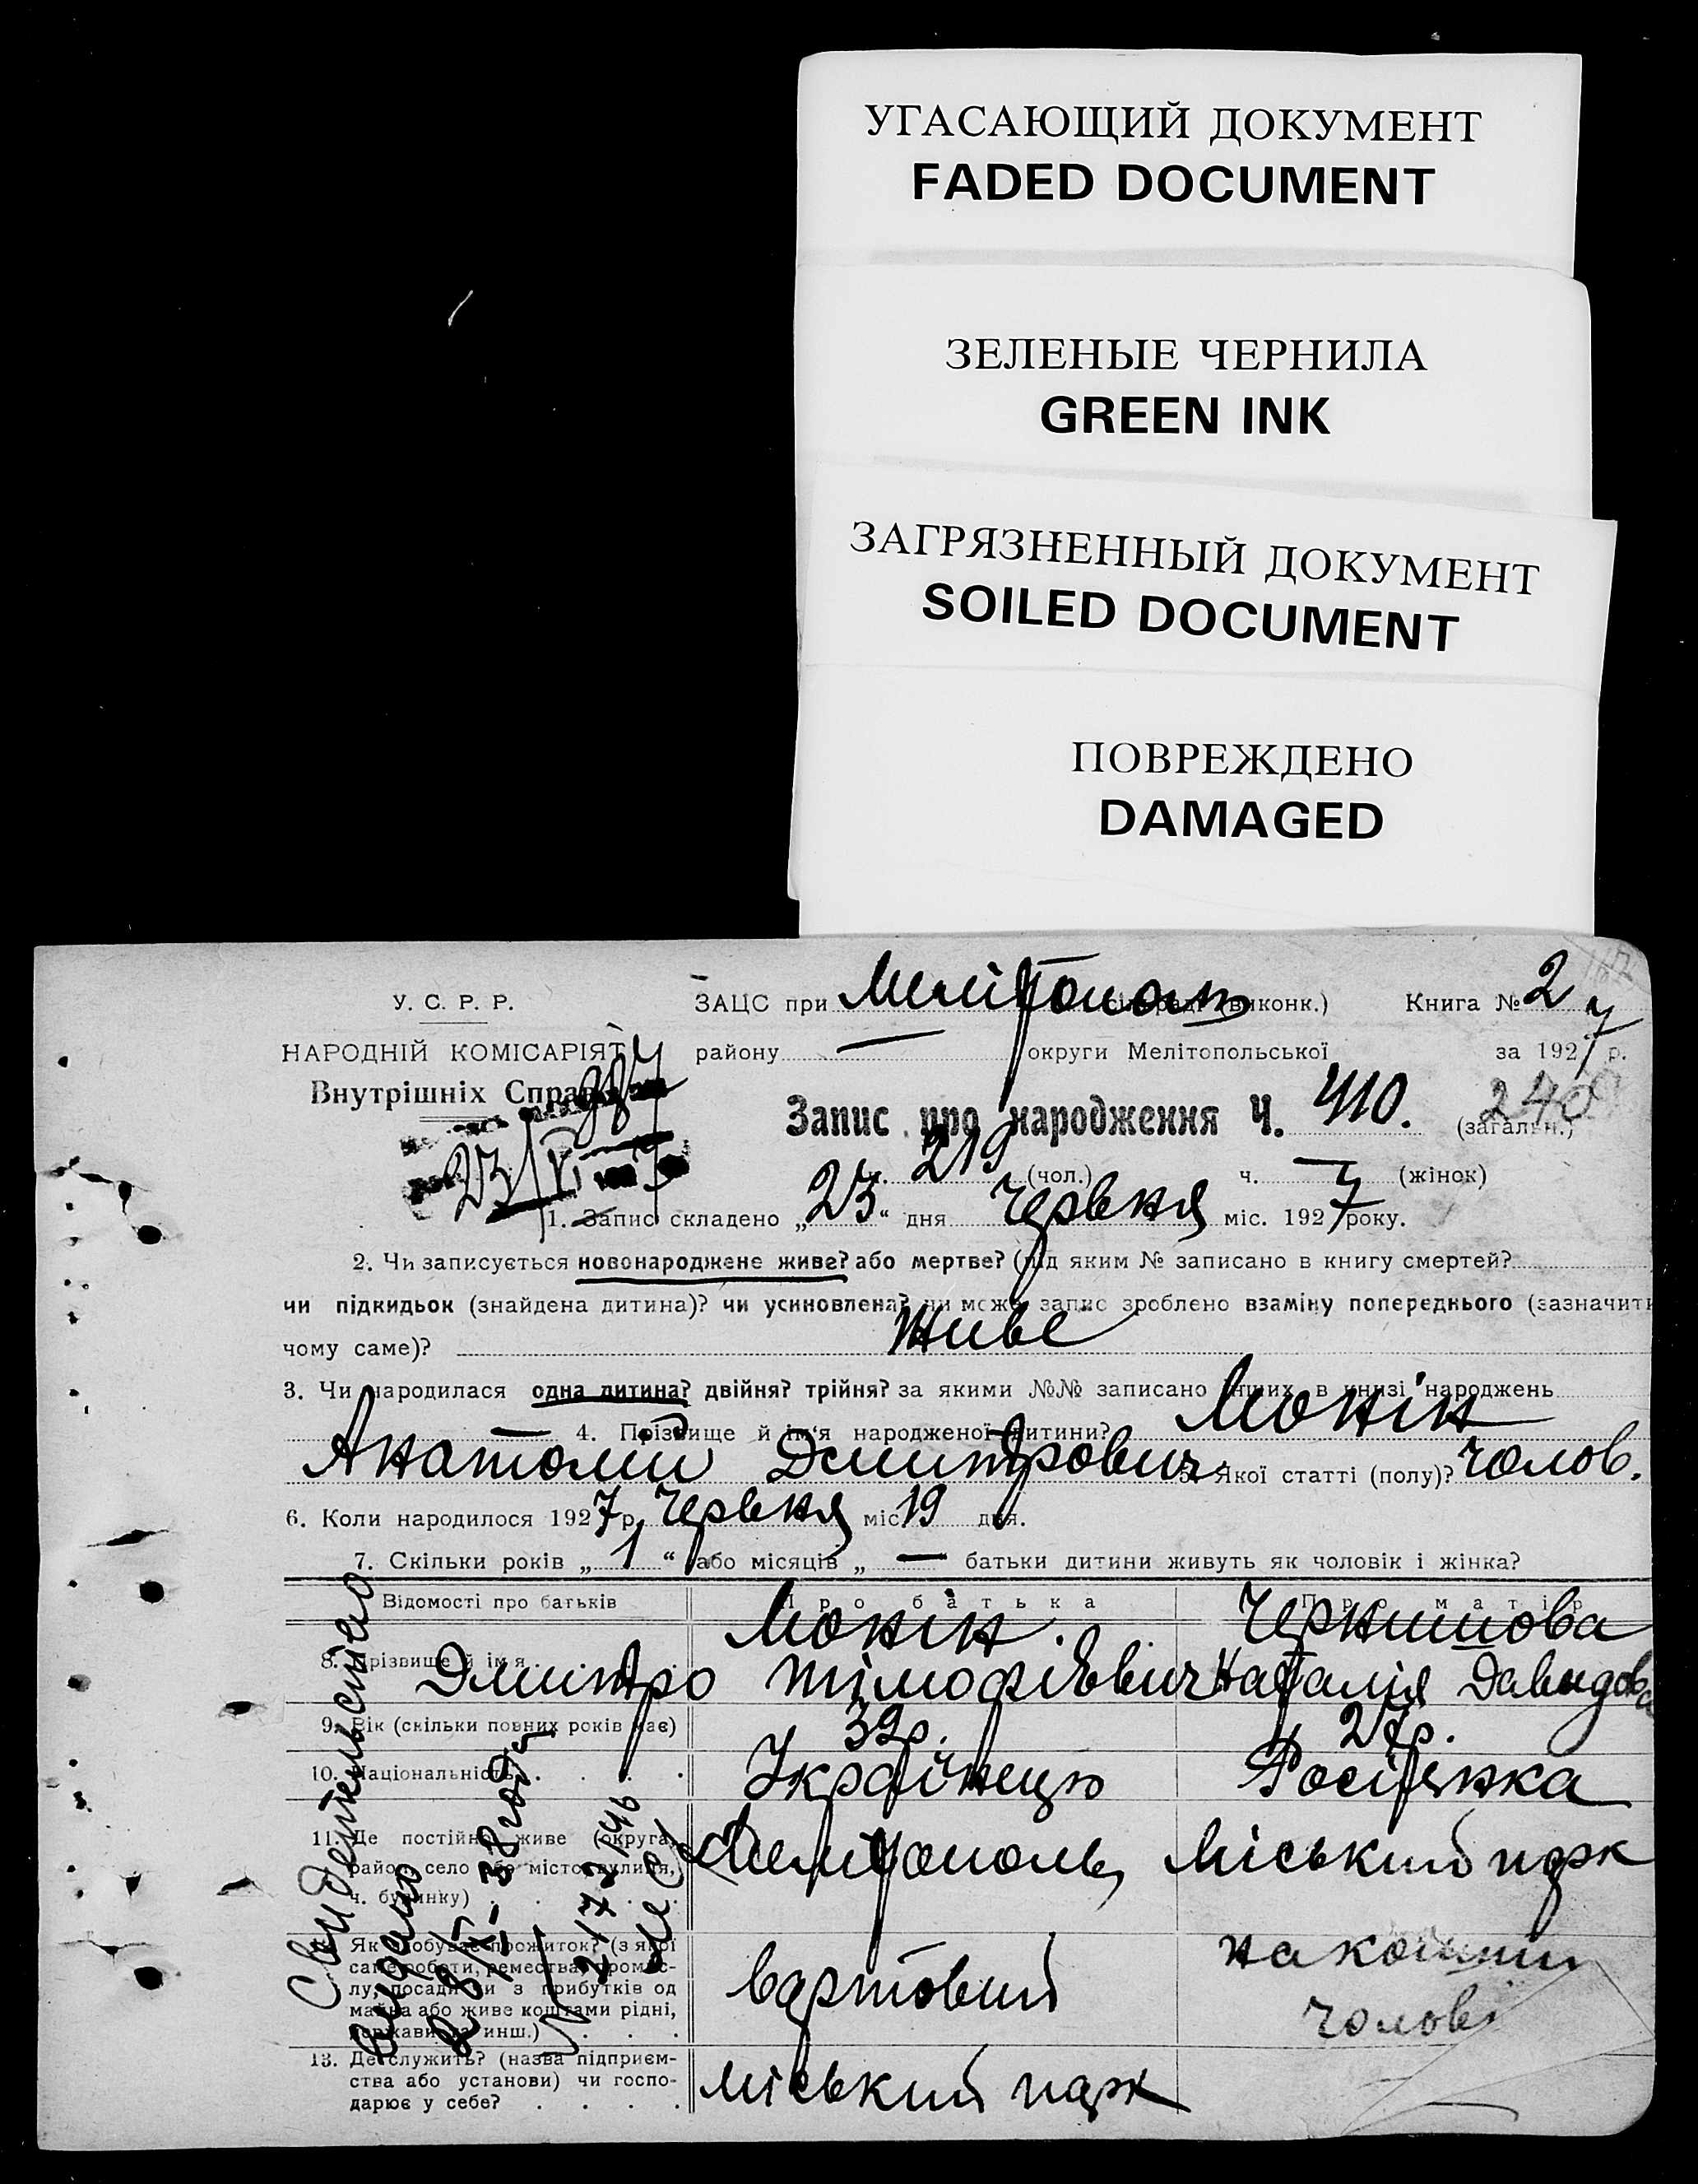 УГАСАЮЩИЙ ДОКУМЕНТ
FADED DOCUMENT
ЗЕЛЕНЫЕ ЧЕРНИЛА
GREEN INK
ЗАГРЯЗНЕННЫЙ ДОКУМЕНТ
SOILED DOCUMENT
ПОВРЕЖДЕНО
DAMAGED
У. С. Р. Р.
ЗАЦС при Мелітополь (виконк.) Книга № 2
НАРОДНІЙ КОМІСАРІЯТ
району — округи Мелітопольської за 1927 р.
Внутрішніх Справ
Запис про народження Ч. 410. 240 (загальн.)
ч. 219 (чол.) ч. — (жінок)
23/VI
1. Запис складено „23“ дня Червня міс. 1927 року.
2. Чи записується новонароджене живе? або мертве? (під яким № записано в книгу смертей?
чи підкидьок (знайдена дитина)? чи усиновлена? чи може запис зроблено взаміну попереднього (зазначити
чому саме)? Живе
3. Чи народилася одна дитина? двійня? трійня? за якими №№ записано інших в книзі народжень
4. Прізвище й ім'я народженої дитини? Монін
Анатолій Дмитрович 5. Якої статті (полу)? Чолов.
6. Коли народилося 1927 р. Червня міс. 19 дня.
7. Скільки років „1“ або місяців „— батьки дитини живуть як чоловік і жінка?
Відомості про батьків Про батька Про матір
Монін. Чернишова
8. Прізвище й ім'я Дмитро Тімофієвич Наталія Давидовa
9. Вік (скільки повних років має) 39р. 27р.
10. Національність Українець Росіянка
11. Де постійно живе (округа, район, село або місто, вулиця, ч. будинку) Мелітополь, Міський парк
12. Як здобуває прожиток? (з якої
саме роботи, ремества, промис-
лу, посади чи з прибутків од
майна або живе коштами рідні,
держави та инш.) вартовий на кошти
чолов
13. Де служить? (назва підприєм-
ства або установи) чи госпо-
дарює у себе? міський парк
Свидетельство
Выдано
28/IX-38 года
№ 2172146